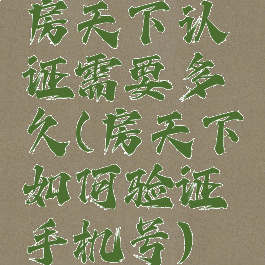 房天下认
证需要多
久(房天下
如何验证
手机号)